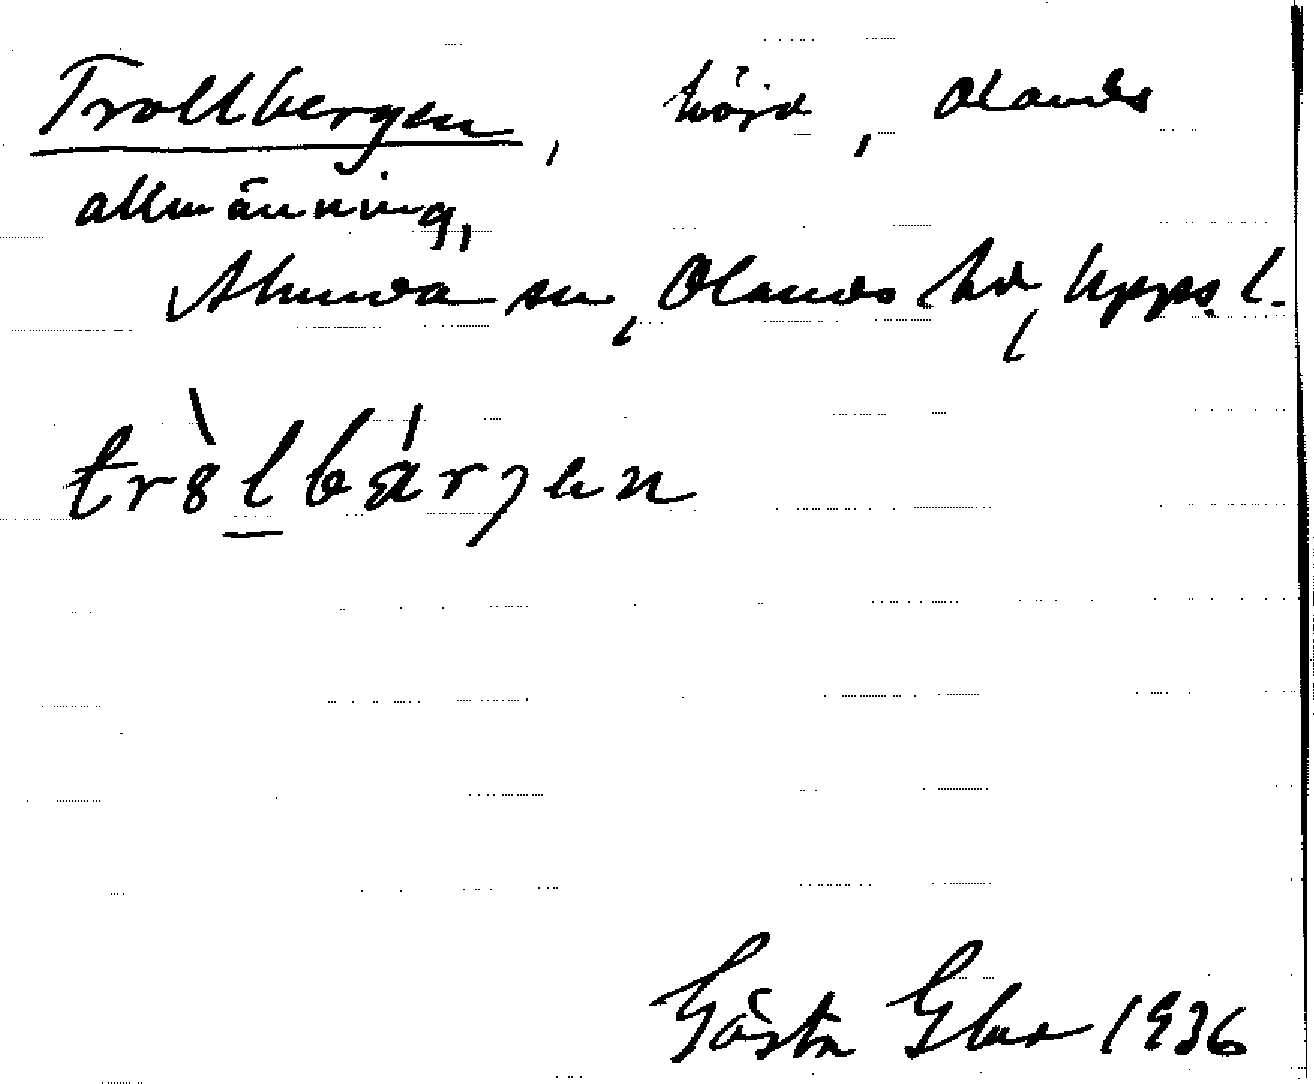 Trollbergen, höjd, Olands
allmänning,
Alunda sn, Olands hd, Upps. l.
tròlbárjen
Gösta 1936